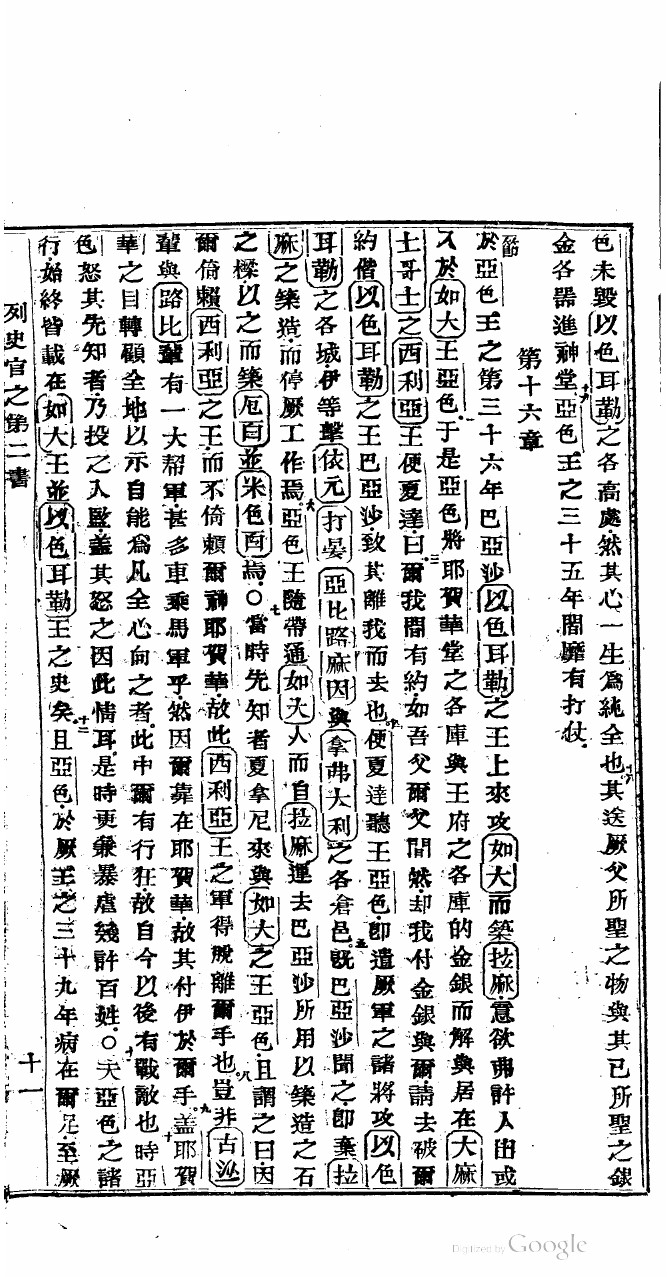 色未毀以色耳勒之各高處然其心一生爲純全也十八其送厥父所聖之物與其已所聖之銀
金各器進神堂十九亞色王之三十五年間靡有打仗
第十六章
一節於亞色王之第三十六年巴亞沙以色耳勒之王上來攻如大而築拉麻意欲弗許人出或
入於如大王亞色二于是亞色將耶賀華堂之各庫與王府之各庫的金銀而解與居在大麻
士哥士之西利亞王便夏達曰三爾我間有約如吾父爾父間然却我付金銀與爾請去被爾
約偕以色耳勒之王巴亞沙致其離我而去也四便夏達聽王亞色卽遣厥軍之諸將攻以色
耳勒之各城伊等擊依元打晏亞比路麻因與拿弗大利之各倉邑五旣巴亞沙聞之卽棄拉
麻之築造而停厥工作焉六亞色王隨帶通如大人而自拉麻運去巴亞沙所用以築造之石
之樑以之而築厄百並米色百焉〇七當時先知者夏拿尼來與如大之王亞色且謂之曰因
爾倚賴西利亞之王而不倚賴爾神耶賀華故此西利亞王之軍得脫離爾手也八豈非古沙
輩與路比輩有一大幇軍甚多車乘馬軍乎然因爾靠在耶賀華故其付伊於爾手九蓋耶賀
華之目轉顧全地以示自能爲凡全心向之者此中爾有行狂故自今以後有戰敵也十時亞
色怒其先知者乃投之入監蓋其怒之因此情耳是時更兼暴虐幾許百姓〇十一夫亞色之諸
行始終皆載在如大王並以色耳勒王之史矣十二且亞色於厥王之三十九年病在爾足至厥
列史官之第二書
十一
Digitized by Google